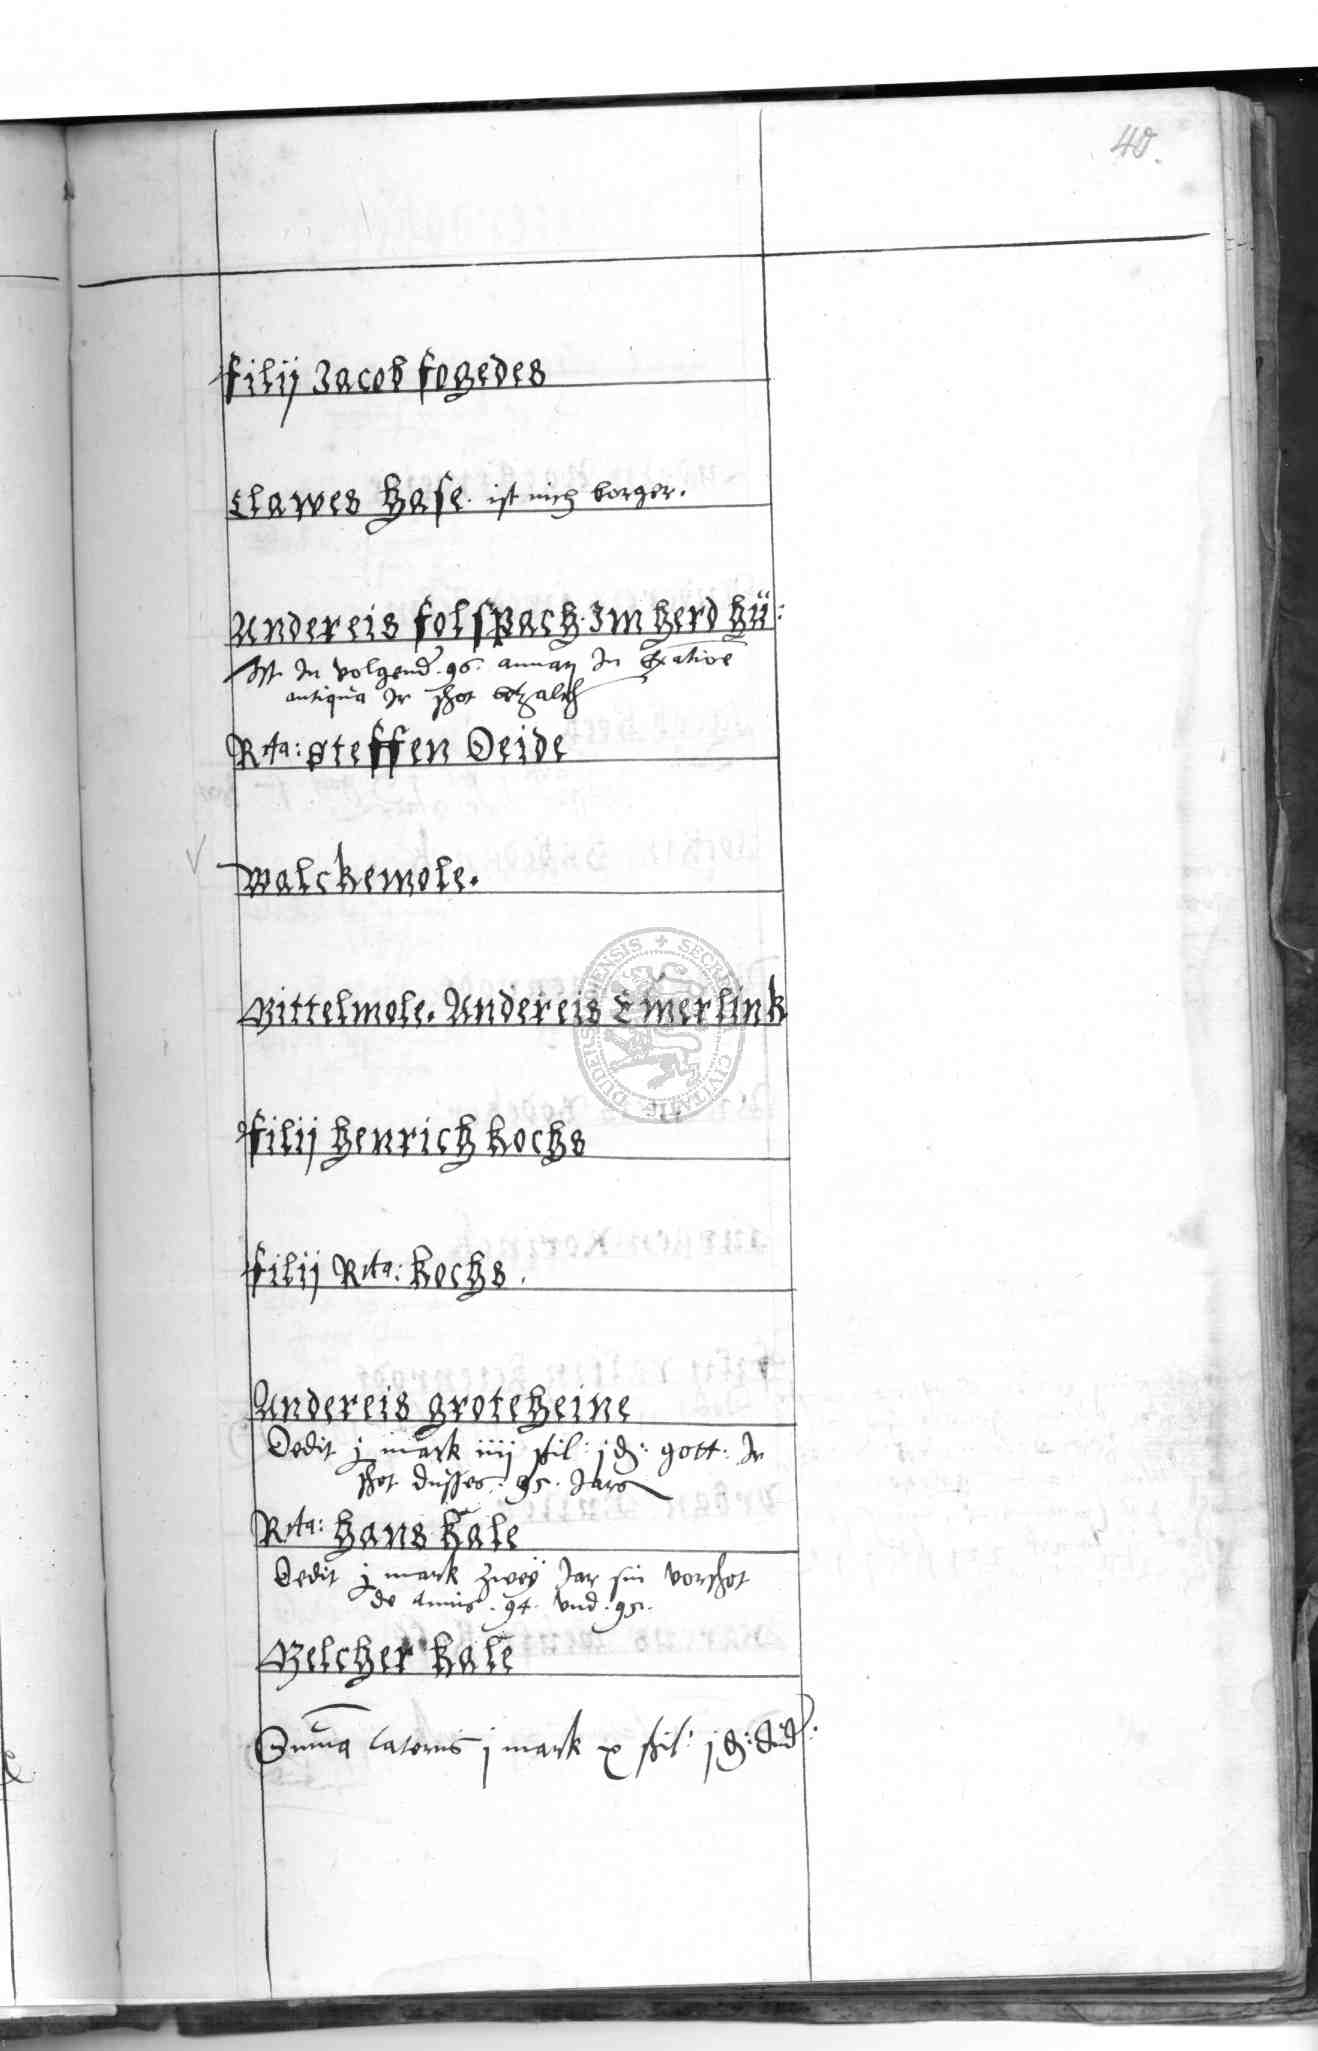 40.
filij Jacob fogedes
Clawes hase. ist nich borger.
Andereis folspach. Im herd hü:
Ist In volgend. 96. annarj In exatione
antiqua Ir schot betzalt
Rta: steffen Deide
Walckemole.
Mittelmole. Andereis Emerlink
filij henrich kochs
filij Rta: kochs.
Andereis groteheine
Dedit j mark iiij schil: j d: gott: Ir
schot dusses. 95. Jars
Rta: hans kale
Dedit j mark zweÿ Jar sin vorschot
de annis. 94. vnd. 95.
Melcher kale
Summa lateris j mark x schil: j d: dud:
SECRETUM CIVITATIS DUDERSTADENSIS